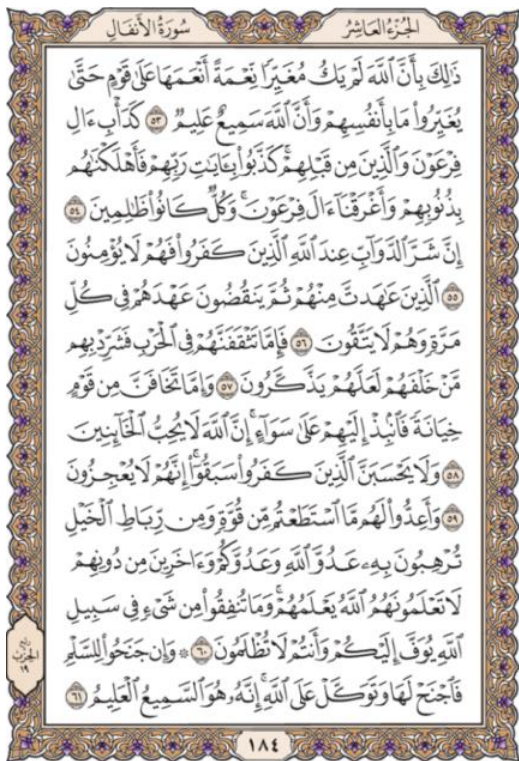 الجُزءُ العَاشِرُ
سُورَةُ الأَنفَالِ
ذَٰلِكَ بِأَنَّ ٱللَّهَ لَمْ يَكُ مُغَيِّرًا نِّعْمَةً أَنْعَمَهَا عَلَىٰ قَوْمٍ حَتَّىٰ
يُغَيِّرُوا۟ مَا بِأَنفُسِهِمْ وَأَنَّ ٱللَّهَ سَمِيعٌ عَلِيمٌ ٥٣ كَدَأْبِ ءَالِ
فِرْعَوْنَ وَٱلَّذِينَ مِن قَبْلِهِمْ ۚ كَذَّبُوا۟ بِـَٔايَـٰتِ رَبِّهِمْ فَأَهْلَكْنَـٰهُم
بِذُنُوبِهِمْ وَأَغْرَقْنَآ ءَالَ فِرْعَوْنَ ۚ وَكُلٌّ كَانُوا۟ ظَـٰلِمِينَ ٥٤
إِنَّ شَرَّ ٱلدَّوَآبِّ عِندَ ٱللَّهِ ٱلَّذِينَ كَفَرُوا۟ فَهُمْ لَا يُؤْمِنُونَ
٥٥ ٱلَّذِينَ عَـٰهَدتَّ مِنْهُمْ ثُمَّ يَنقُضُونَ عَهْدَهُمْ فِى كُلِّ
مَرَّةٍ وَهُمْ لَا يَتَّقُونَ ٥٦ فَإِمَّا تَثْقَفَنَّهُمْ فِى ٱلْحَرْبِ فَشَرِّدْ بِهِم
مَّنْ خَلْفَهُمْ لَعَلَّهُمْ يَذَّكَّرُونَ ٥٧ وَإِمَّا تَخَافَنَّ مِن قَوْمٍ
خِيَانَةً فَٱنۢبِذْ إِلَيْهِمْ عَلَىٰ سَوَآءٍ ۚ إِنَّ ٱللَّهَ لَا يُحِبُّ ٱلْخَآئِنِينَ
٥٨ وَلَا يَحْسَبَنَّ ٱلَّذِينَ كَفَرُوا۟ سَبَقُوٓا۟ ۚ إِنَّهُمْ لَا يُعْجِزُونَ
٥٩ وَأَعِدُّوا۟ لَهُم مَّا ٱسْتَطَعْتُم مِّن قُوَّةٍ وَمِن رِّبَاطِ ٱلْخَيْلِ
تُرْهِبُونَ بِهِۦ عَدُوَّ ٱللَّهِ وَعَدُوَّكُمْ وَءَاخَرِينَ مِن دُونِهِمْ
لَا تَعْلَمُونَهُمُ ٱللَّهُ يَعْلَمُهُمْ ۚ وَمَا تُنفِقُوا۟ مِن شَىْءٍ فِى سَبِيلِ
ٱللَّهِ يُوَفَّ إِلَيْكُمْ وَأَنتُمْ لَا تُظْلَمُونَ ٦٠ ۞ وَإِن جَنَحُوا۟ لِلسَّلْمِ
فَٱجْنَحْ لَهَا وَتَوَكَّلْ عَلَى ٱللَّهِ ۚ إِنَّهُۥ هُوَ ٱلسَّمِيعُ ٱلْعَلِيمُ ٦١
الحِزْب
١٩
١٨٤